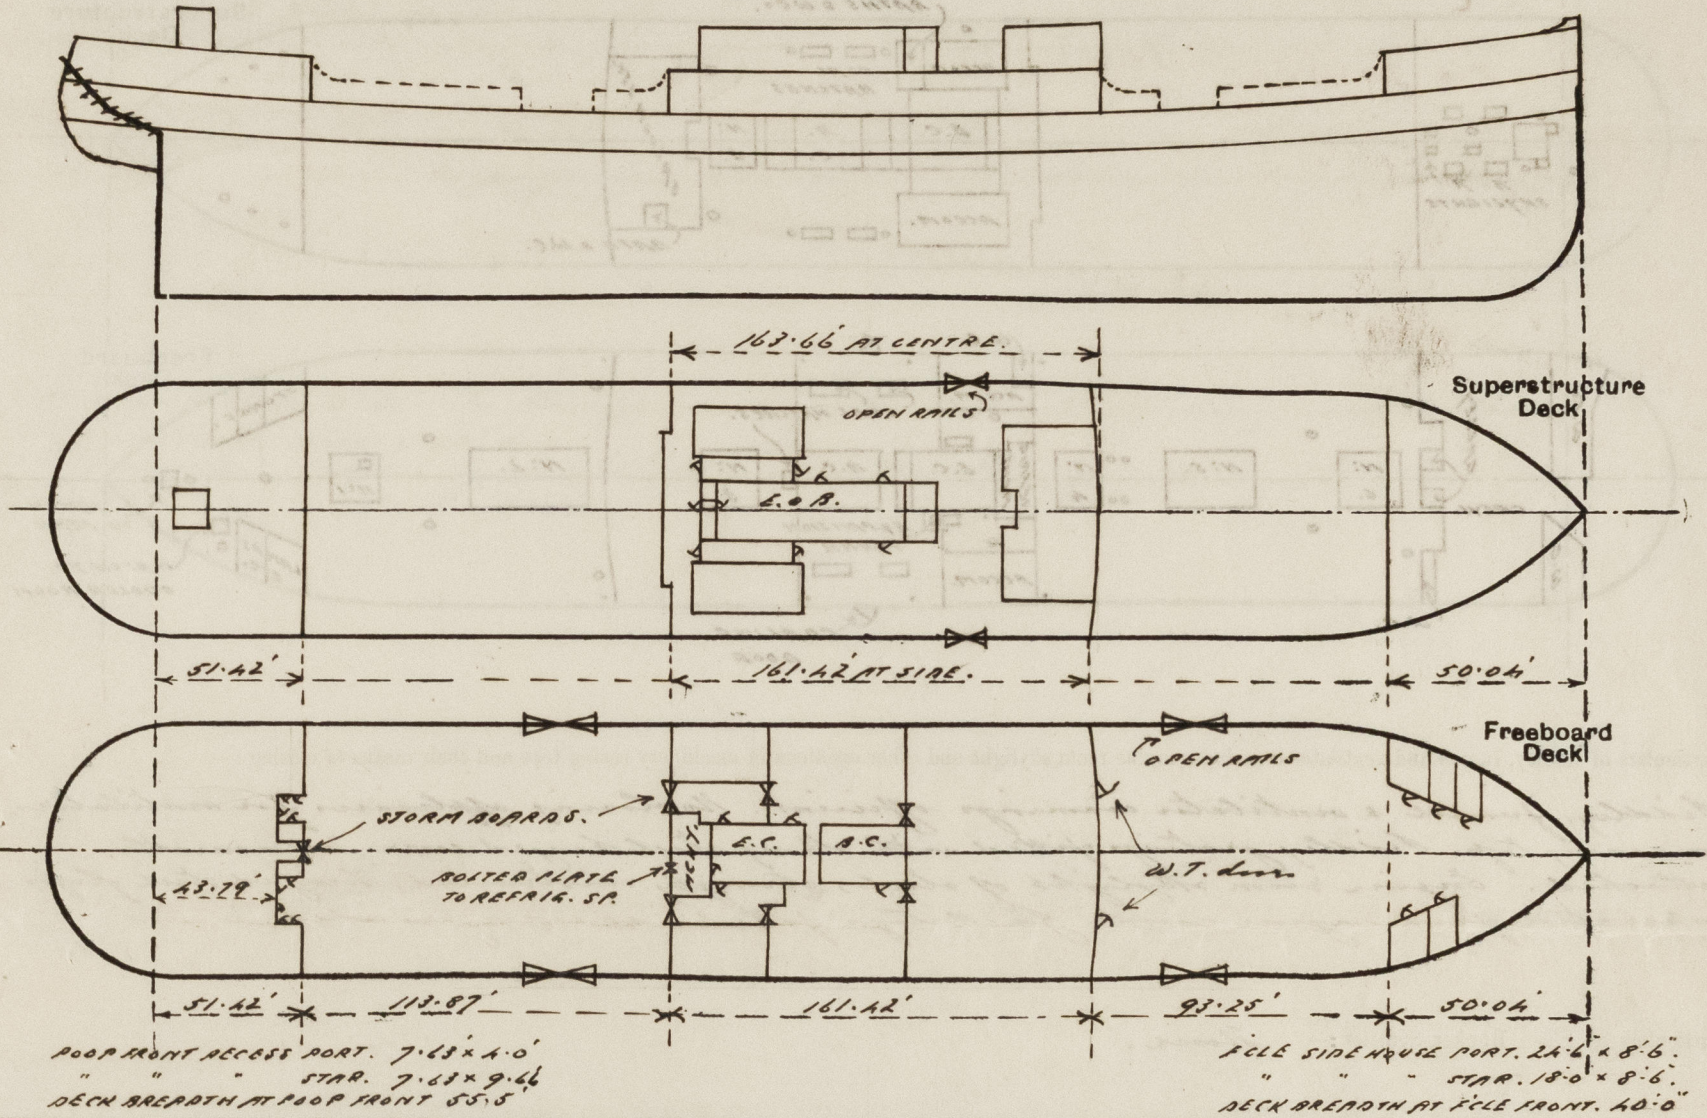 163.66' AT CENTRE.
Superstructure
Deck
OPEN RAILS
E. & B.
51.42'
161.42' AT SIDE.
50.04'
Freeboard
Deck
OPEN RAILS
STORM BOARDS.
E.C.
B.C.
BOLTED PLATE
TO REFRIG. SP.
W.T. doors
43.79'
51.42'
113.87'
161.42'
93.25'
50.04'
POOP FRONT RECESS PORT. 7.63' × 4.0'
" " " STAR. 7.63' × 9.66'
DECK BREADTH AT POOP FRONT 55.5'
F'CLE SIDE HOUSE PORT. 24'.6" × 8'.6".
" " " STAR. 18'.0" × 8'.6".
DECK BREADTH AT F'CLE FRONT. 40'.0"